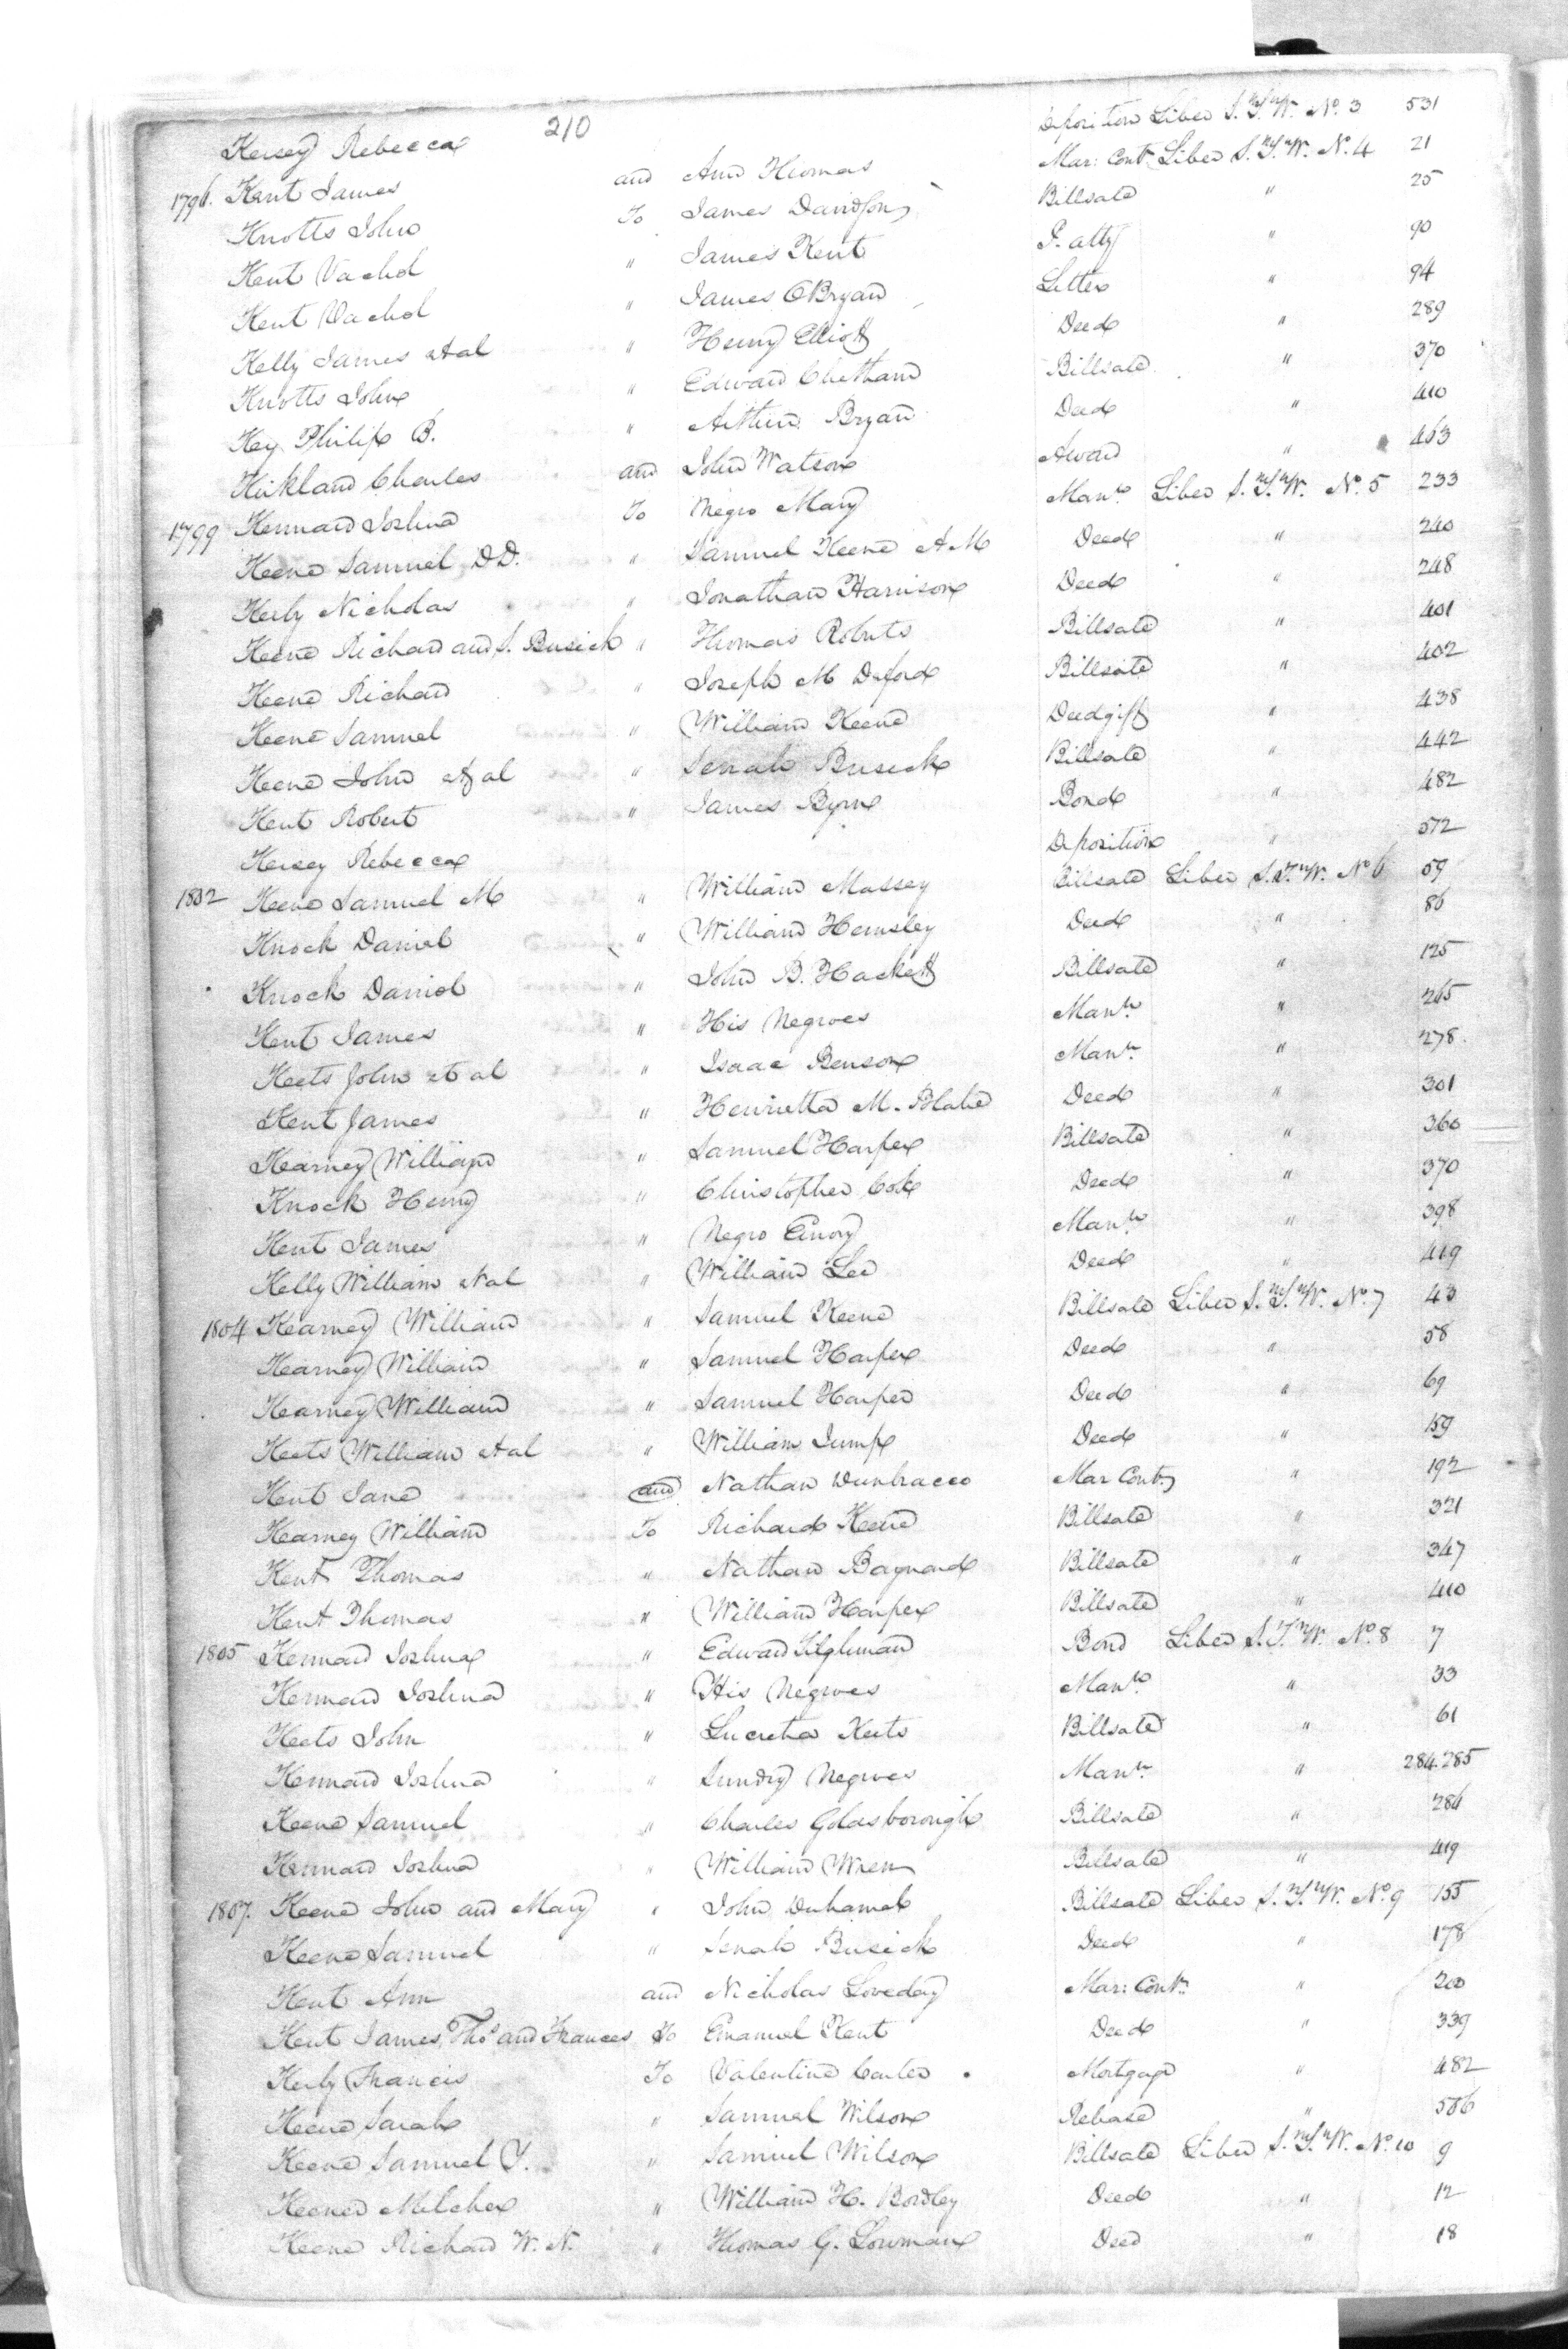 210
Kersey Rebecca Deposition Liber S.T.W. No. 3 531
1796. Kent James and Ann Thomas Mar: Cont. Liber S.T.W. N. 4 21
Knotts John To James Davidson Billsale " 25
Kent Vachel " James Kent P. atty " 90
Kent Vachel " James OBryan Letter " 94
Kelly James et al " Henry Elliott Deed " 289
Knotts John " Edward Chetham Billsale " 370
Key Philip B. " Arthur Bryan Deed " 410
Kirkland Charles and John Watson Award " 463
1799 Kennard Joshua To Negro Mary Mann. Liber S.T.W. No. 5 233
Keene Samuel D.D. " Samuel Keene " Deed " 240
Kerby Nicholas " Jonathan Harrison Deed " 248
Keene Richard and S. Busick " Thomas Roberts Billsale " 401
Keene Richard " Joseph M Deford Billsale " 402
Keene Samuel " William Keene Deedgift " 438
Keene John et al " Senah Busick Billsale " 442
Kent Robert " James Byrn Bond " 482
Kersey Rebecca Deposition " 572
1802 Keene Samuel M " William Massey Billsale Liber S.T.W. No 6 59
Knock Daniel " William Hemsley Deed " 86
Knock Daniel " John B. Hackett Billsale " 125
Kent James " His Negroes Mann. " 265
Keets John et al " Isaac Benson Mann. " 278
Kent James " Henrietta M. Blake Deed " 301
Kearney William " Samuel Harper Billsale " 360
Knock Henry " Christopher Cox Deed " 370
Kent James " Negro Emory Mann. " 398
Kelly William et al " William Lee Deed " 419
1804 Kearney William " Samuel Keene Billsale Liber S.T.W. No. 7 43
Kearney William " Samuel Harper Deed " 58
Kearney William " Samuel Harper Deed " 69
Keets William et al " William Jump Deed " 159
Kent Jane and Nathan Dunbracco Mar Cont. " 192
Kearney William To Richard Keene Billsale " 321
Kent Thomas " Nathan Baynard Billsale " 347
Kent Thomas " William Harper Billsale " 410
1805 Kennard Joshua " Edward Tilghman Bond Liber S.T.W. No. 8 7
Kennard Joshua " His Negroes Mann. " 33
Keets John " Lucretia Keets Billsale " 61
Kennard Joshua " Sundry Negroes Mann. " 284.285
Keene Samuel " Charles Goldsborough Billsale " 286
Kennard Joshua " William Wren Billsale " 419
1807. Keene John and Mary " John Duhamel Billsale Liber S.T.W. No. 9 155
Keene Samuel " Senah Busick Deed " 178
Kent Ann and Nicholas Loveday Mar: Cont. " 200
Kent James, Thos and Frances To Emanuel Kent Deed " 339
Kerby Francis To Valentine Carter Mortgage " 482
Keene Sarah " Samuel Wilson Release " 506
Keene Samuel Y. " Samuel Wilson Billsale Liber S.T.W. No. 10 9
Keener Melchor " William H. Bordley Deed " 12
Keene Richard W. N. " Thomas G. Lowman Deed " 18